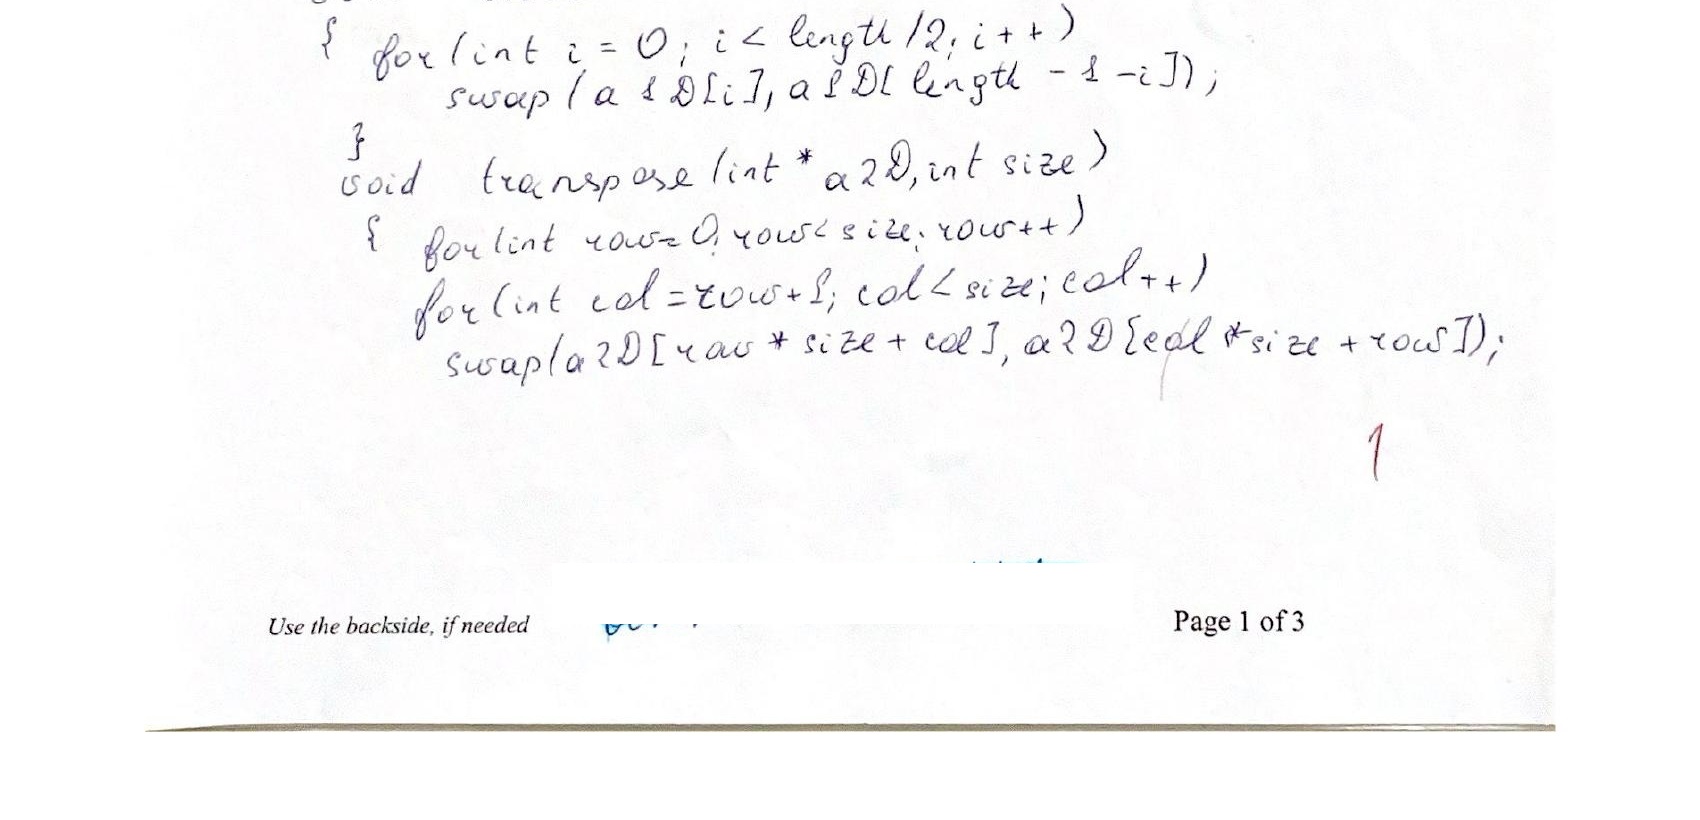 { for(int i = 0; i < length /2; i++)
swap(a1D[i], a1D[length - 1 - i]);
}
void transpose(int * a2D, int size)
{ for(int row=0; row< size; row++)
for(int col=row+1; col< size; col++)
swap(a2D[row * size + col], a2D[col *size + row]);
1
Use the backside, if needed Page 1 of 3